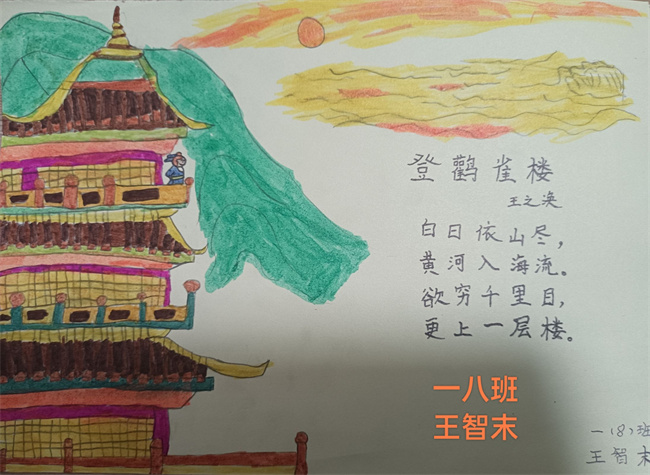 登鹳雀楼
王之涣
白日依山尽，
黄河入海流。
欲穷千里目，
更上一层楼。
一八班
王智末
一（8）班
王智末